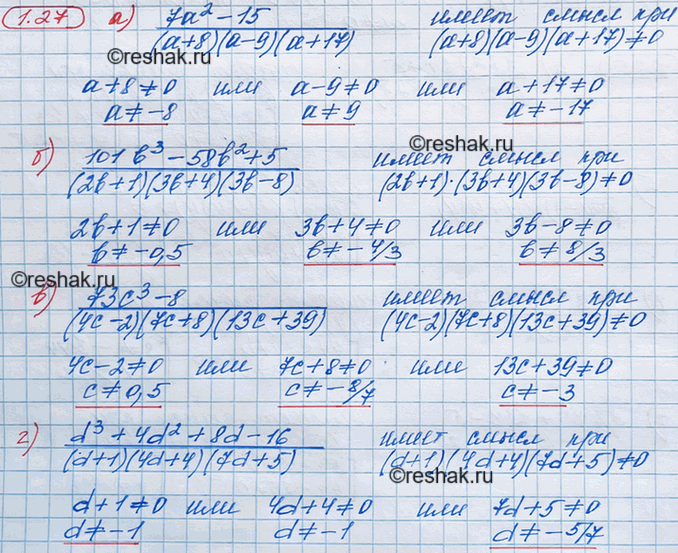 1.27 а) 7a² − 15 / (a+8)(a−9)(a+17) имеет смысл при (a+8)(a−9)(a+17) ≠ 0
©reshak.ru
a+8 ≠ 0 или a−9 ≠ 0 или a+17 ≠ 0
a ≠ −8 a ≠ 9 a ≠ −17
©reshak.ru
б) 101b³ − 58b² + 5 / (2b+1)(3b+4)(3b−8) имеет смысл при (2b+1)·(3b+4)(3b−8) ≠ 0
2b+1 ≠ 0 или 3b+4 ≠ 0 или 3b−8 ≠ 0
b ≠ −0,5 b ≠ −4/3 b ≠ 8/3
©reshak.ru
©reshak.ru
в) 73c³ − 8 / (4c−2)(7c+8)(13c+39) имеет смысл при (4c−2)(7c+8)(13c+39) ≠ 0
4c−2 ≠ 0 или 7c+8 ≠ 0 или 13c+39 ≠ 0
c ≠ 0,5 c ≠ −8/7 c ≠ −3
©reshak.ru
г) d³ + 4d² + 8d − 16 / (d+1)(4d+4)(7d+5) имеет смысл при (d+1)(4d+4)(7d+5) ≠ 0
d+1 ≠ 0 или 4d+4 ≠ 0 или 7d+5 ≠ 0
d ≠ −1 d ≠ −1 d ≠ −5/7